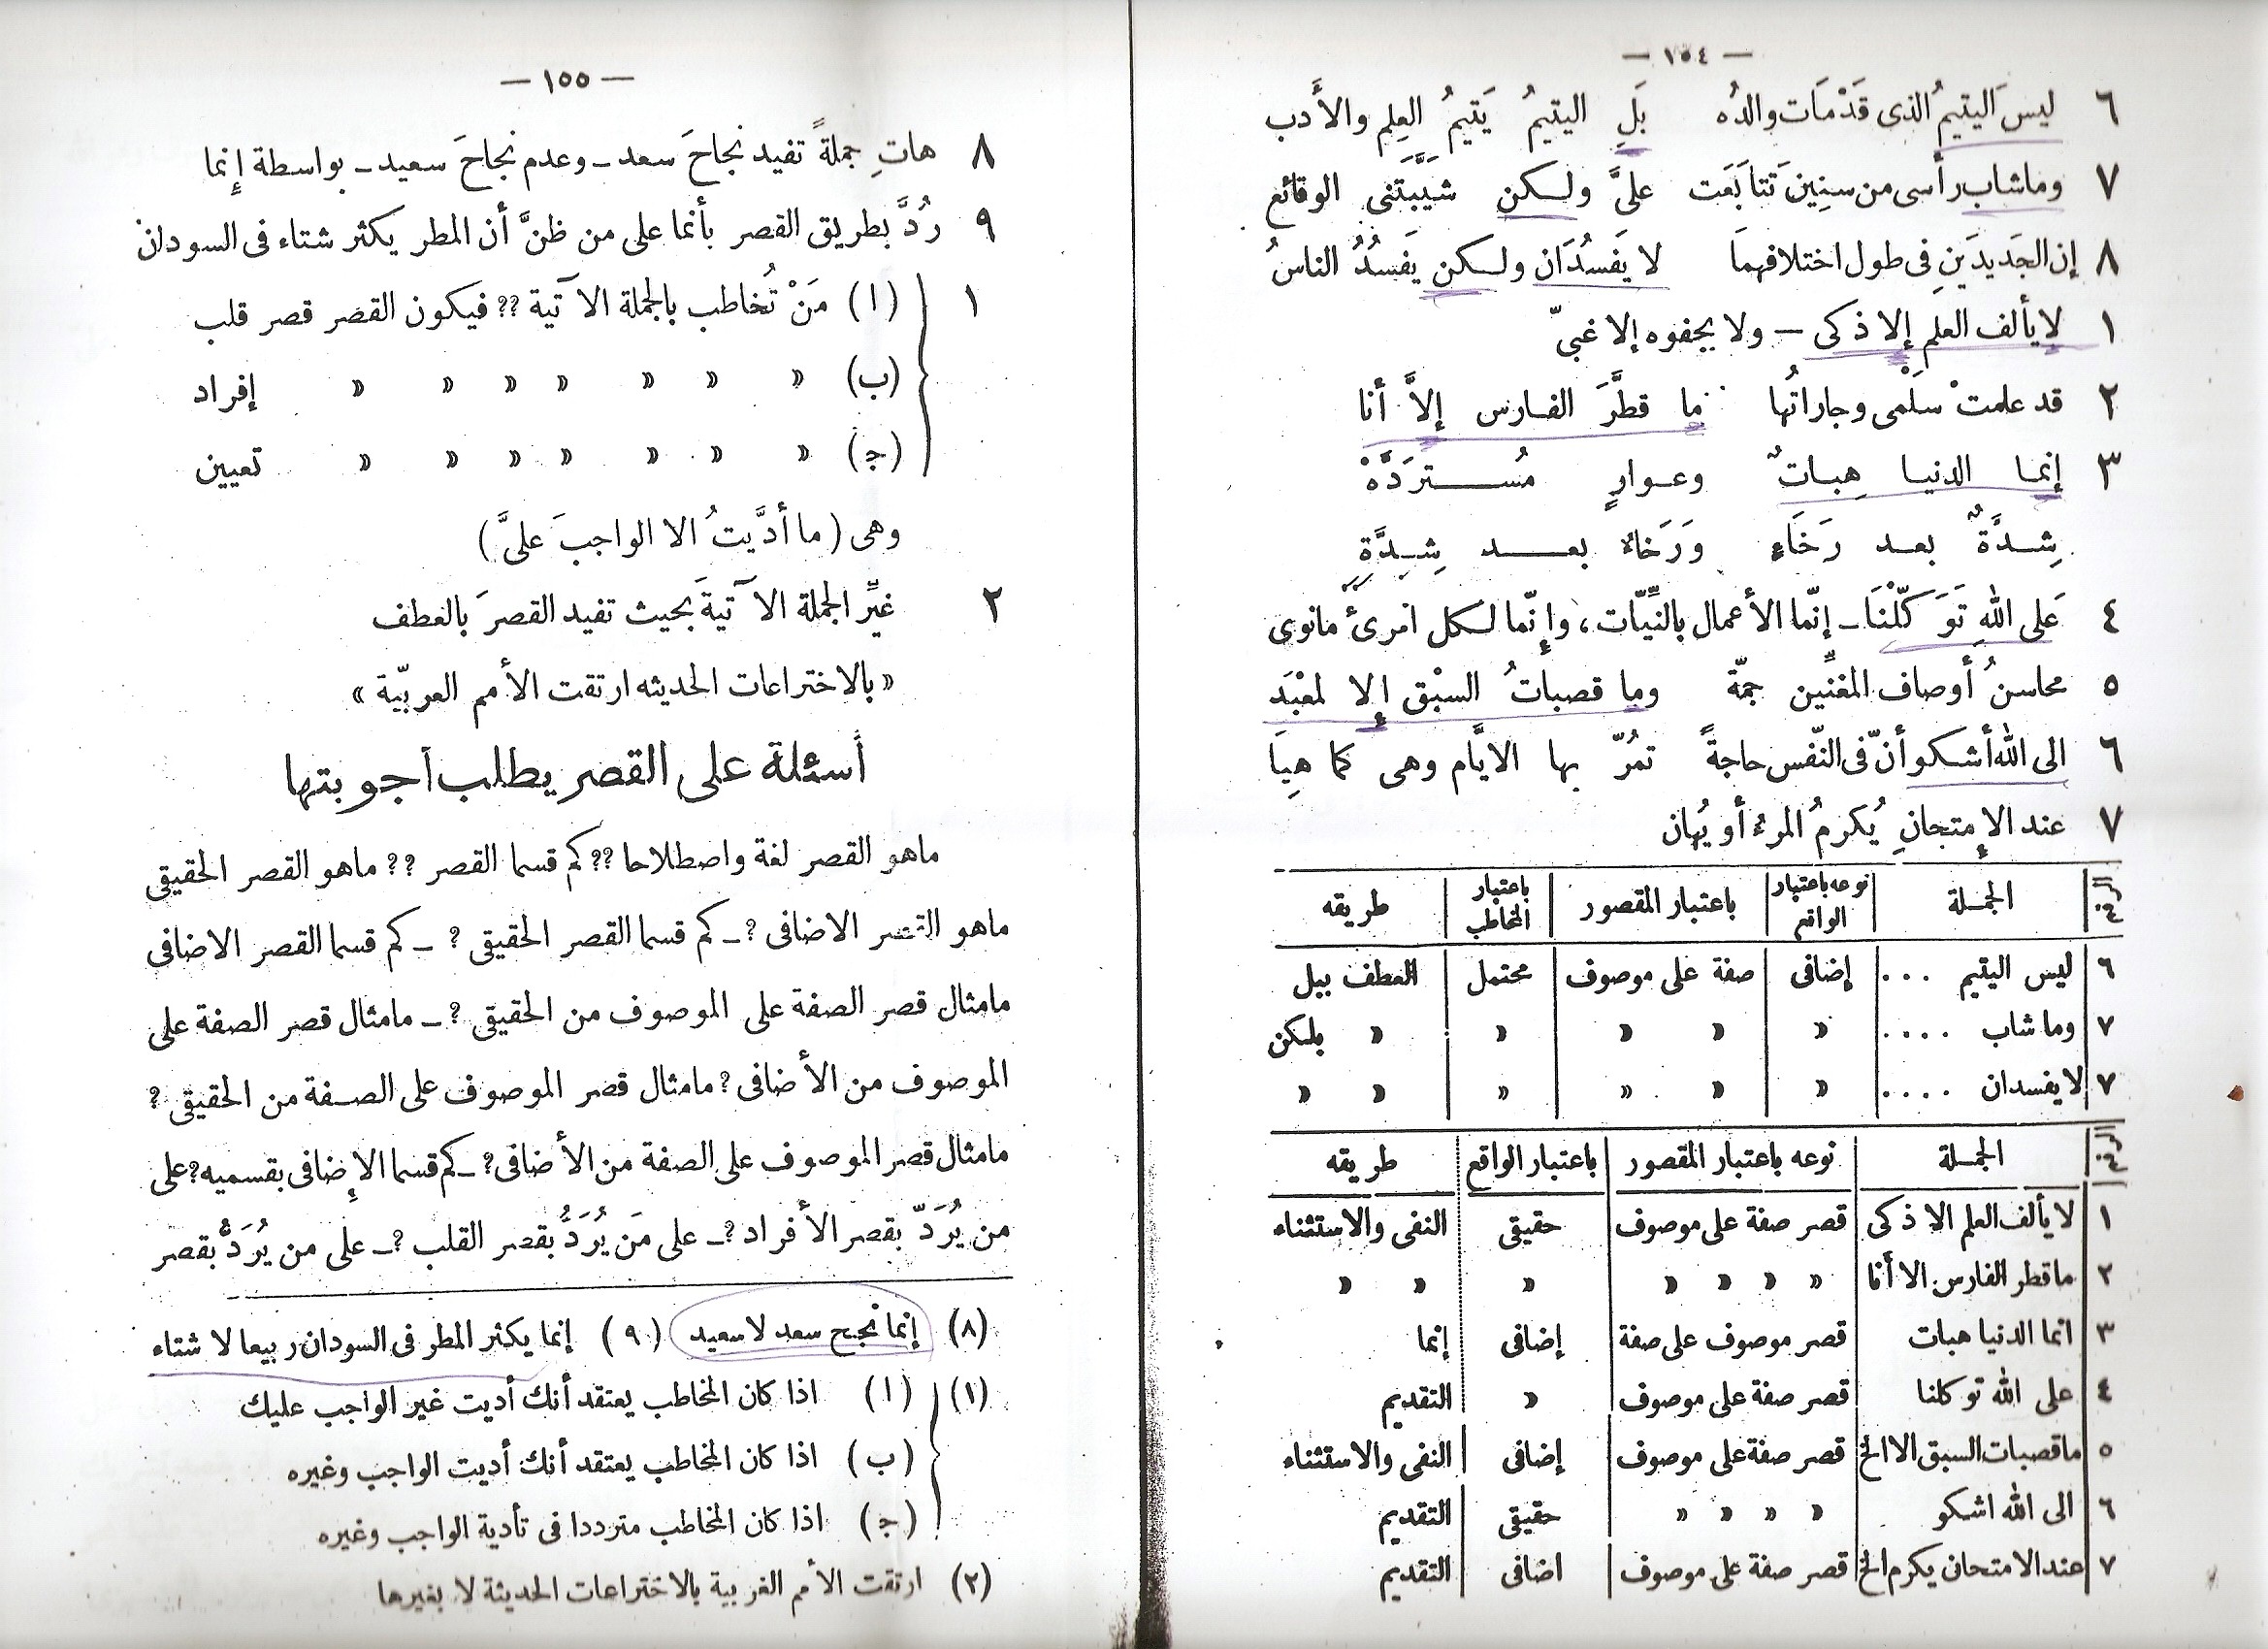 — ١٥٤ —
٦ ليسَ اليتيمُ الذى قَدْ مَات والدُه بَلِ اليتيمُ يَتيمُ العِلمِ والأَدب
٧ وما شاب رأسى من سنِينَ تتابَعَت علىَّ ولكن شيَّبَتنى الوقائع
٨ إن الجَديدَينِ فى طول اختلافهمَا لا يَفسُدَان ولكن يَفسُدُ الناسُ
١ لا يألف العلم إلا ذكى — ولا يجفوه إلا غبىّ
٢ قد علمتْ سلْمى وجاراتُها ما قطَّرَ الفارس إلاَّ أنا
٣ إنما الدنيا هِباتٌ وعوارٍ مُستردَّهْ
شِدَّةٌ بعد رَخَاءٍ وَرَخَاءٌ بعد شِدَّةٍ
٤ عَلى اللهِ تَوَكّلْنَا ـ إنّما الأعمال بالنِّيّات، وإنّما لكل امرئ مانوى
٥ محاسنُ أوصاف المغنِّين جمّة وما قصباتُ السبْق إلا لمعْبَد
٦ الى الله أشكو أنّ فى النّفس حاجةً تمُرّ بها الايَّام وهى كما هيَا
٧ عند الإمتحانِ يُكرمُ المرءُ أو يُهان
الرقم الجملة نوعه باعتبار الواقع باعتبار المقصور باعتبار المخاطب طريقه
٦ ليس اليتيم ... إضافى صفة على موصوف محتمل العطف ببل
٧ وما شاب .... » » » » » بلكن
٧ لا يفسدان .... » » » » » »
الرقم الجملة نوعه باعتبار المقصور باعتبار الواقع طريقه
١ لا يألف العلم الا ذكى قصر صفة على موصوف حقيقى النفى والاستثناء
٢ ما قطر الفارس الا أنا » » » » » » »
٣ انما الدنيا هبات قصر موصوف على صفة إضافى إنما
٤ على الله توكلنا قصر صفة على موصوف » التقديم
٥ ما قصبات السبق الا الخ قصر صفة على موصوف إضافى النفى والاستثناء
٦ الى الله اشكو » » » » حقيقى التقديم
٧ عند الامتحان يكرم الخ قصر صفة على موصوف اضافى التقديم
— ١٥٥ —
٨ هاتِ جملةً تفيد نجاحَ سعد ـ وعدم نجاحَ سعيد ـ بواسطة إنما
٩ رُدَّ بطريق القصر بأنما على من ظنَّ أن المطر يكثر شتاء فى السودان
١ (ا) مَنْ تُخاطب بالجملة الآتية ؟؟ فيكون القصر قصر قلب
(ب) » » » » » » » إفراد
(ج) » » » » » » » تعيين
وهى (ما أدَّيتُ الا الواجبَ علىَّ)
٢ غيِّر الجملة الآتيةَ بحيث تفيد القصرَ بالعطف
« بالاختراعات الحديثه ارتقت الأمم العربيّة »
أسئلة على القصر يطلب أجوبتها
ماهو القصر لغة واصطلاحا ؟؟ كم قسما القصر ؟؟ ماهو القصر الحقيقى
ماهو القصر الاضافى ؟ ـ كم قسما القصر الحقيقى ؟ ـ كم قسما القصر الاضافى
مامثال قصر الصفة على الموصوف من الحقيقى ؟ ـ مامثال قصر الصفة على
الموصوف من الأضافى ؟ مامثال قصر الموصوف على الصفة من الحقيقى ؟
مامثال قصر الموصوف على الصفة من الأضافى ؟ ـ كم قسما الإضافى بقسميه ؟ على
من يُرَدّ بقصر الأفراد ؟ ـ على مَن يُرَدُّ بقصر القلب ؟ ـ على من يُرَدُّ بقصر
(٨) إنما نجح سعد لا سعيد (٩) إنما يكثر المطر فى السودان ربيعا لا شتاء
(١) (ا) اذا كان المخاطب يعتقد أنك أديت غير الواجب عليك
(ب) اذا كان المخاطب يعتقد أنك أديت الواجب وغيره
(ج) اذا كان المخاطب مترددا فى تأدية الواجب وغيره
(٢) ارتقت الأمم الغربية بالاختراعات الحديثة لا بغيرها